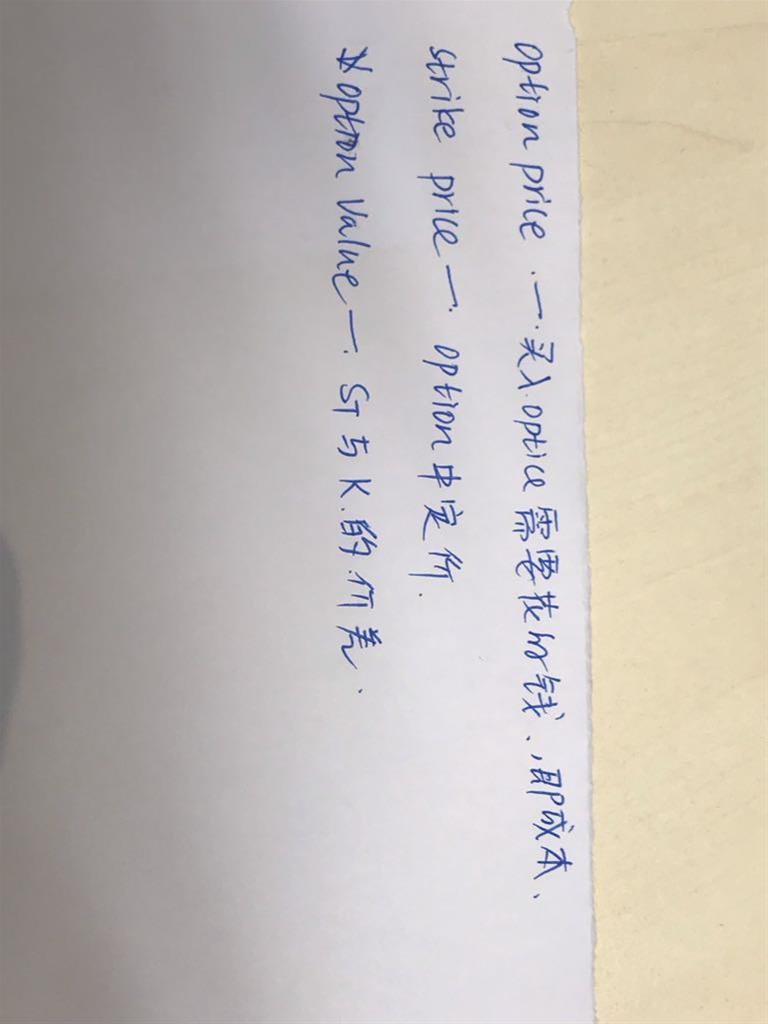 option price . 一. 买入.optice需要花的钱、,即成本、
strike price 一. option中定价.
option value 一. ST与K.的.价差.